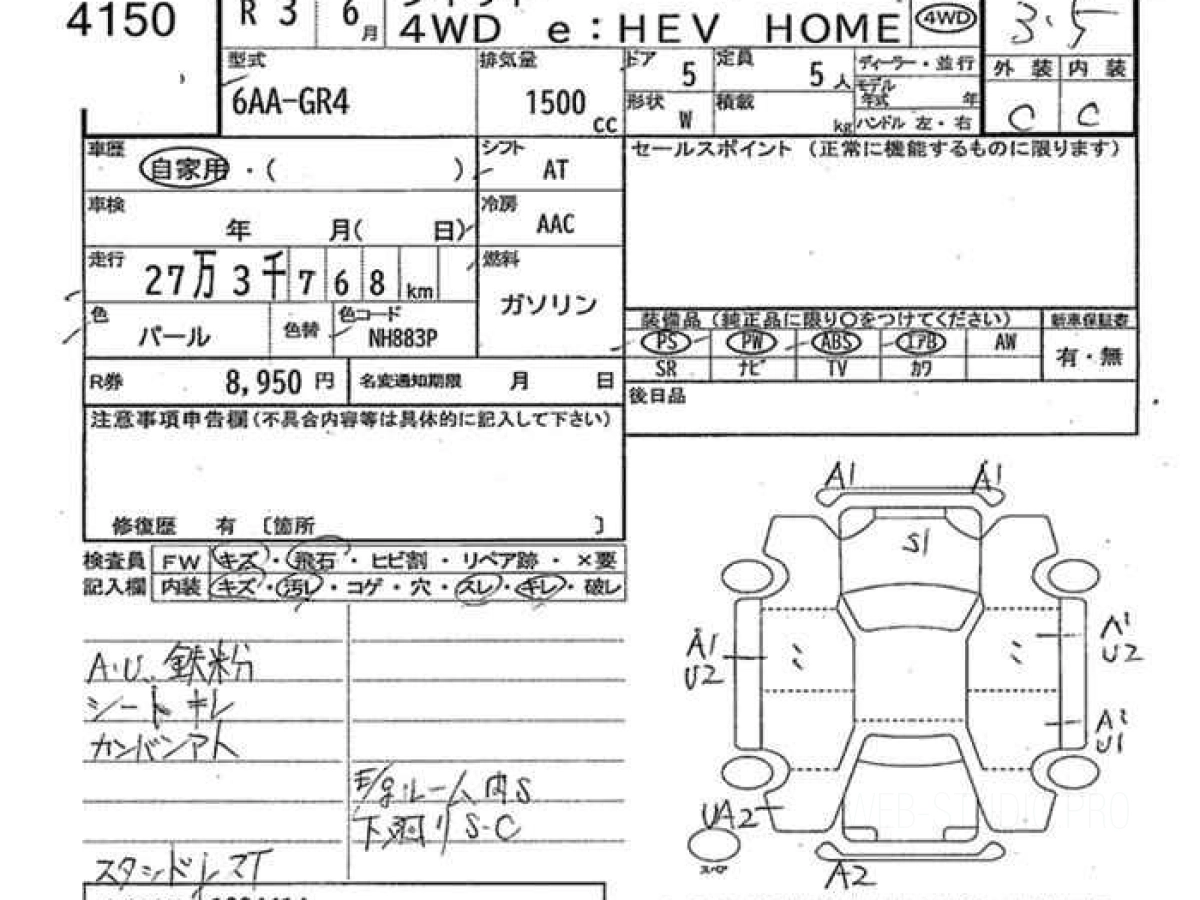 4150
R 3 6月
4WD e:HEV HOME
4WD
3.5
型式
6AA-GR4
排気量
1500 cc
ドア 5
定員 5 人
形状 W
積載 kg
ディーラー・並行
モデル年式 年
ハンドル 左・右
外装 内装
C C
車歴
自家用・( )
シフト
AT
セールスポイント (正常に機能するものに限ります)
車検
年 月( 日)
冷房
AAC
走行
27万3千768km
燃料
ガソリン
色
パール
色替
色コード
NH883P
装備品 (純正品に限り○をつけてください)
新車保証書
PS PW ABS エアB AW
有・無
SR ナビ TV カワ
R券 8,950 円
名変通知期限 月 日
後日品
注意事項申告欄(不具合内容等は具体的に記入して下さい)
修復歴 有 〔箇所 〕
検査員記入欄
FW キズ・飛石・ヒビ割・リペア跡・×要
内装 キズ・汚レ・コゲ・穴・スレ・キレ・破レ
A・U 鉄粉
シートキレ
カンバンアト
ルーム内S
下廻りS-C
A1 A1
S1
A1
U2
A1
U2
A2
U1
UA2
スペア
A2
WEB-STUDIO PRO